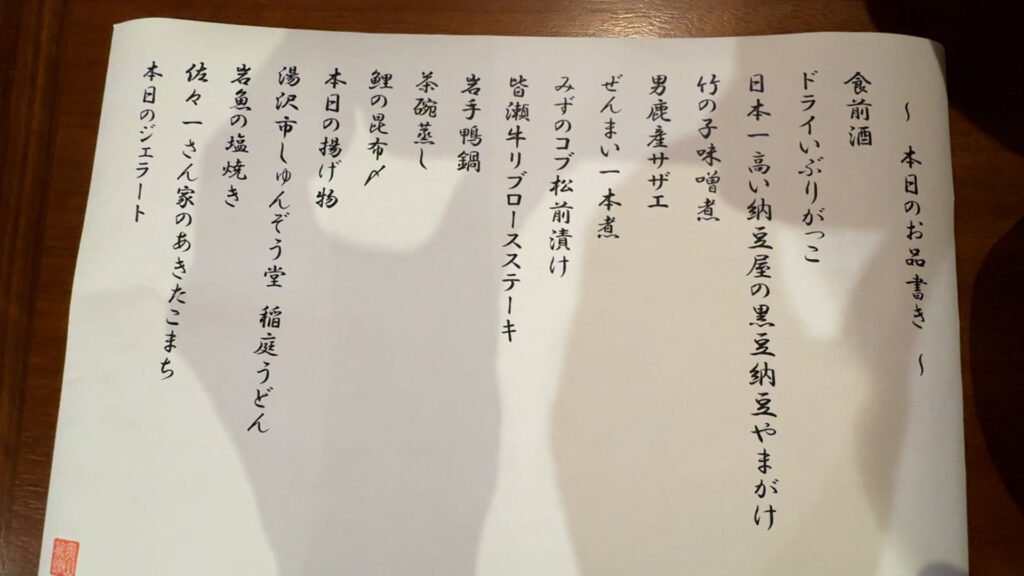 〜 本日のお品書き 〜
食前酒
ドライいぶりがっこ
日本一高い納豆屋の黒豆納豆やまがけ
竹の子味噌煮
男鹿産サザエ
ぜんまい一本煮
みずのコブ松前漬け
皆瀬牛リブロースステーキ
岩手鴨鍋
茶碗蒸し
鯉の昆布〆
本日の揚げ物
湯沢市しゅんぞう堂 稲庭うどん
岩魚の塩焼き
佐々一さん家のあきたこまち
本日のジェラート